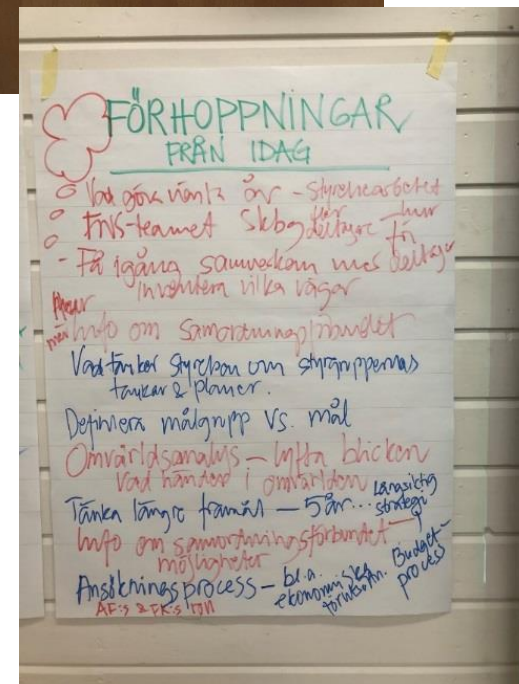 FÖRHOPPNINGAR
FRÅN IDAG
Vad göra nästa år - styrelsearbetet
FNS-teamet deltagare - hur få
- Få igång samverkan mes deltagar
inventera vilka vägar
mer Info om samordningsförbundet
Vad tänker styrelsen om styrgruppernas
tankar & planer.
Definiera målgrupp vs. mål
Omvärldsanalys - lyfta blicken
vad händer i omvärlden
Tänka längre framåt - 5 år... Långsiktig strategi
Info om samordningsförbundet -
möjligheter
Budget-
process
Ansökningsprocess - bl.a.
ekonomiska
AF:s & FK:s